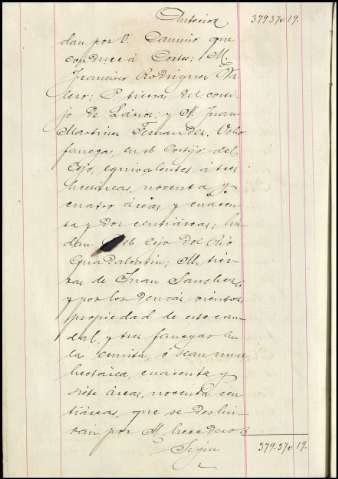 Anterior 379.370 19.
dan por O. Camino que
conduce á Cortes; M.
Francisco Rodriguez
P. tierras del corti-
jo de y N. Juan
Martinez Fernandez. Ocho
fanegas, en el Cortijo del
Cojo, equivalentes á tres
hectareas, noventa y
cuatro áreas, y cuaren-
ta y dos centiáreas, lin-
dan el Cojo del Rio
Guadalentin; M. tier-
ras de Juan Sanchez,
y por los demás vientos
propiedad de este cau-
dal, y tres fanegas en
la ó sean una
hectárea, cuarenta y
siete áreas, noventa cen-
tiáreas, que se deslin-
dan por M. herederos
Sigue 379.370 19.